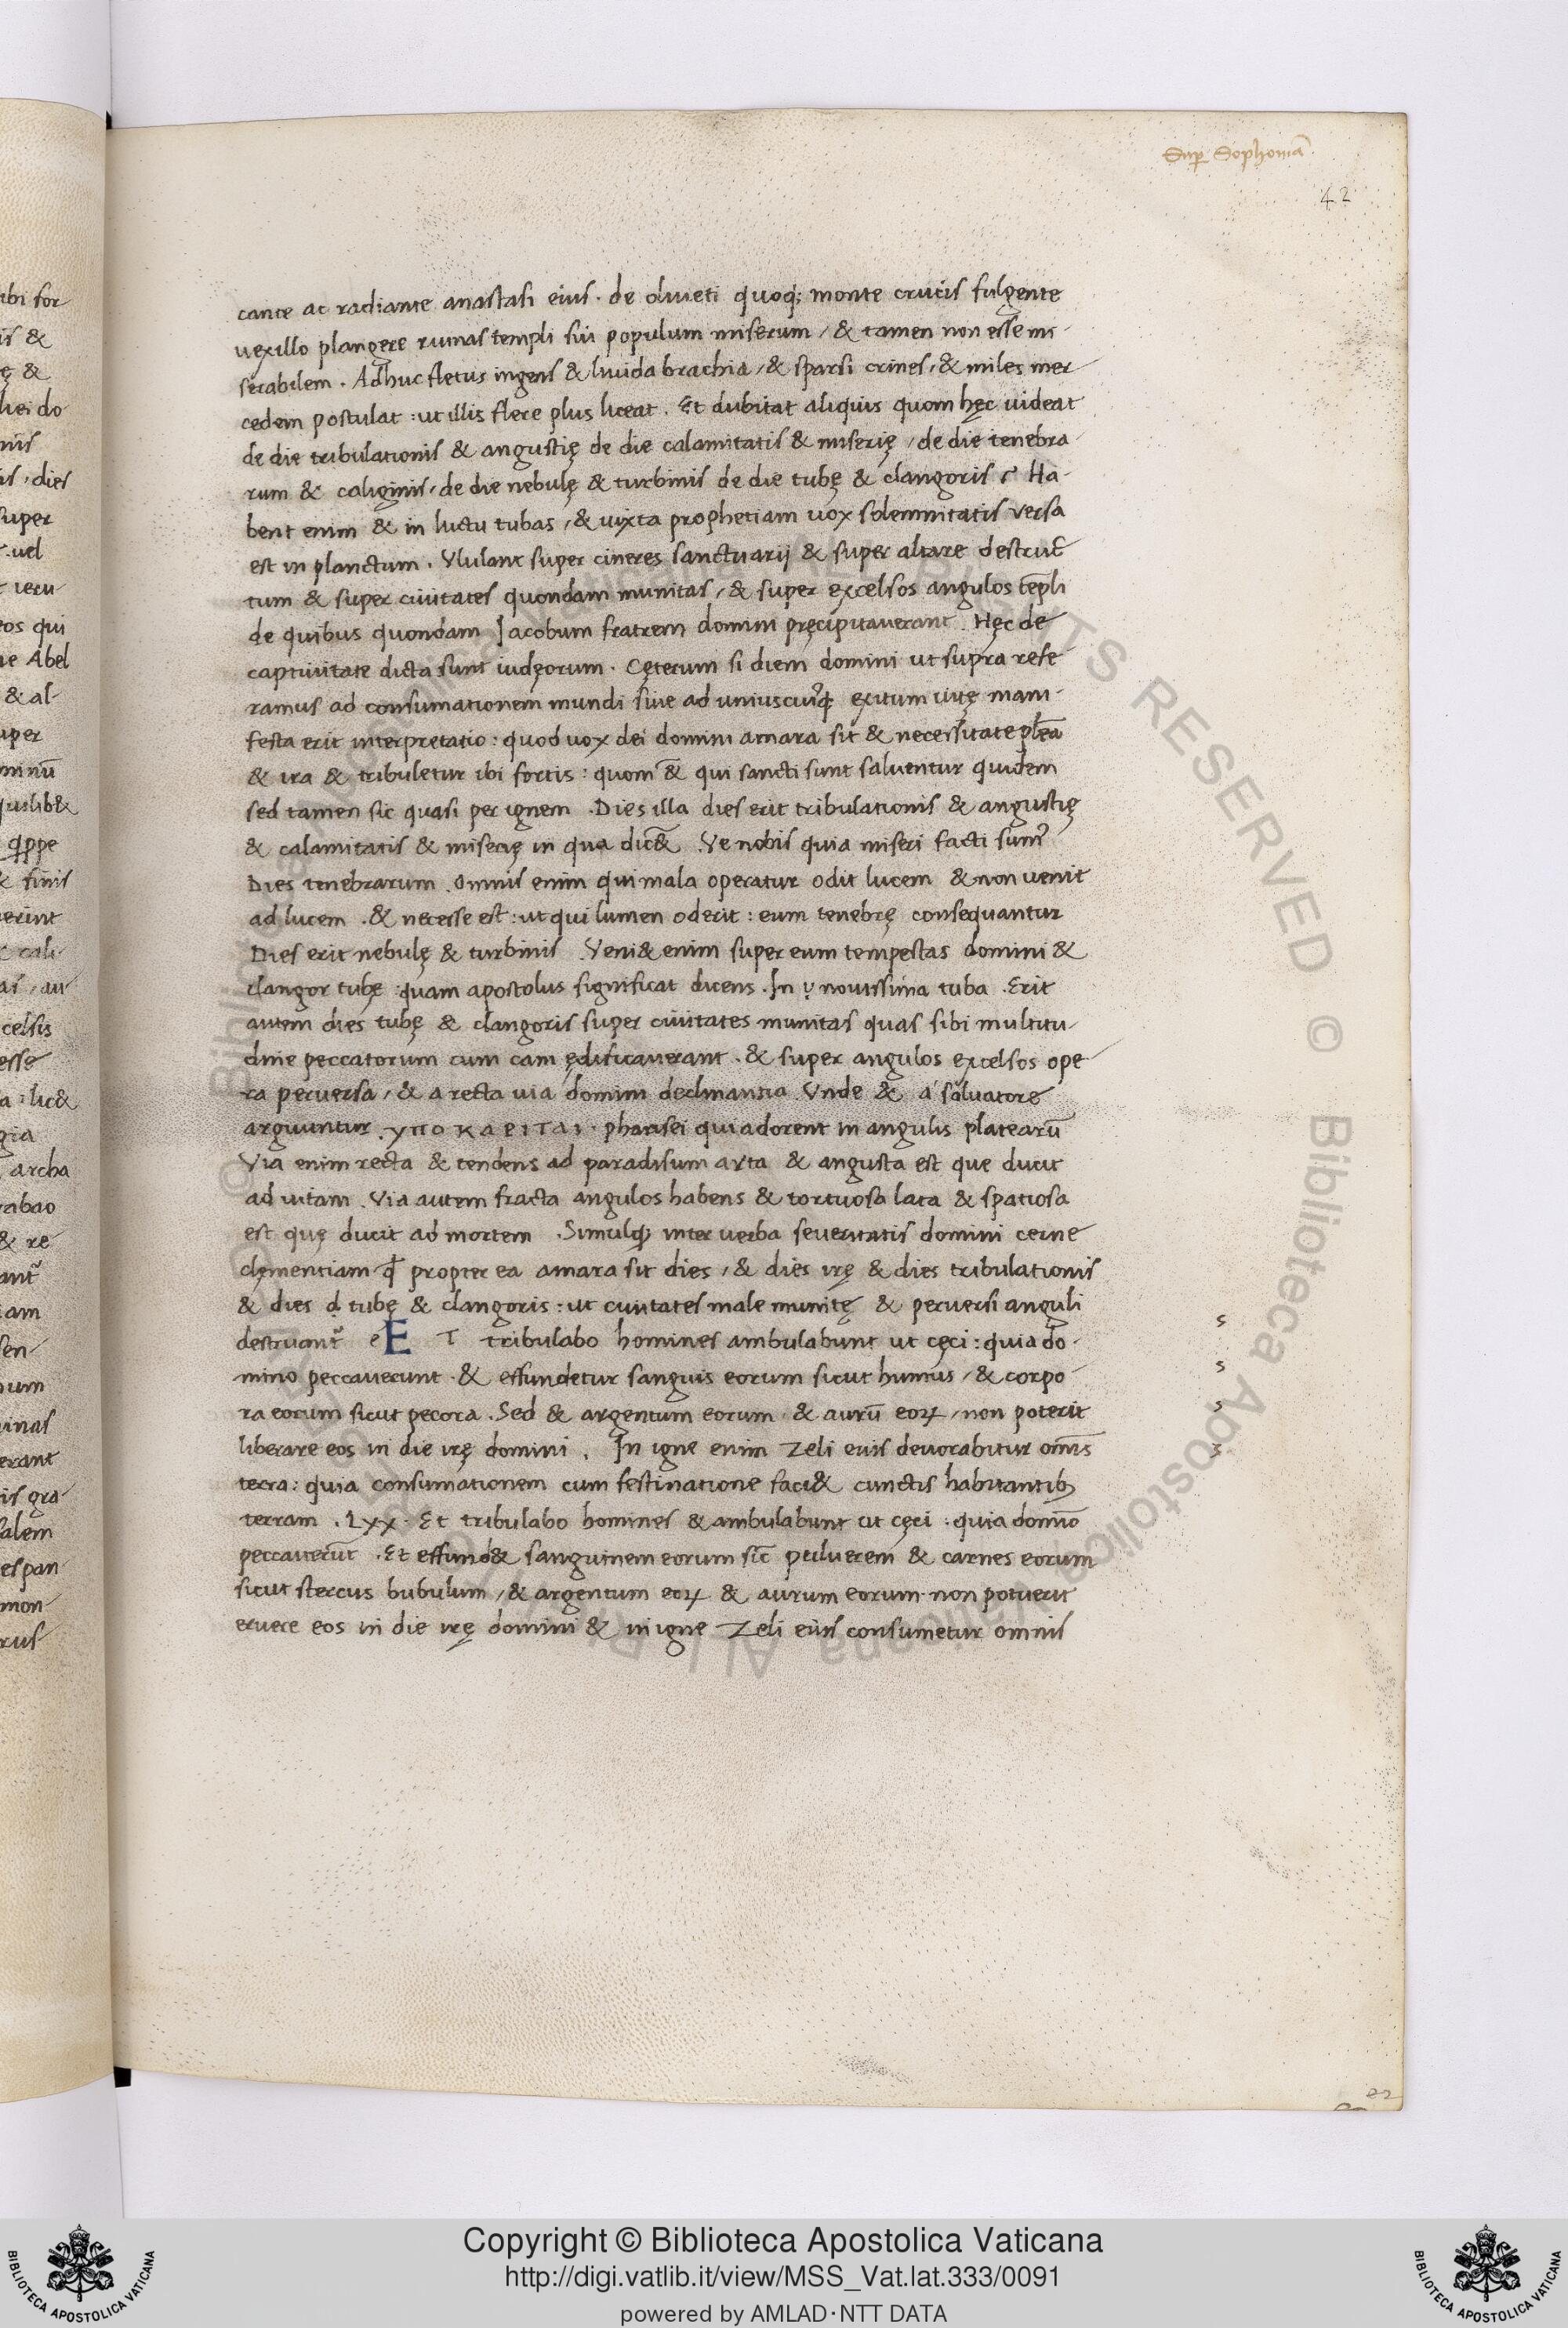 Sup Sophoniā
42
cante ac radiante anastasi eius. de oliueti quoq; monte crucis fulgente
uexillo plangere ruinas templi sui populum miserum, & tamen non esse mi-
serabilem. Adhuc fletus ingens & liuida brachia, & sparsi crines, & miles mer-
cedem postulat: ut illis flere plus liceat. Et dubitat aliquis quom hęc uideat
de die tribulationis & angustię de die calamitatis & miserię, de die tenebra-
rum & caliginis, de die nebulę & turbinis de die tubę & clangoris? Ha-
bent enim & in luctu tubas, & iuxta prophetiam uox solemnitatis versa
est in planctum. Vlulant super cineres sanctuarij & super altare destruc̄
tum & super ciuitates quondam munitas, & super excelsos angulos tēpli
de quibus quondam Jacobum fratrem domini pręcipitauerant. Hęc de
captiuitate dicta sunt iudęorum. Cęterum si diem domini ut supra refe
ramus ad consumationem mundi siue ad uniuscuiꝰq; exitum uitę mani-
festa erit interpretatio: quod uox dei domini amara sit & necessitate plēa
& ira & tribuletur ibi fortis: quom & qui sancti sunt saluentur quidem
sed tamen sic quasi per ignem. Dies illa dies erit tribulationis & angustię
& calamitatis & miserię in qua dic&. Ve nobis quia miseri facti sumꝰ
Dies tenebrarum. Omnis enim qui mala operatur odit lucem & non uenit
ad lucem. & necesse est: ut qui lumen oderit: eum tenebrę consequantur
Dies erit nebulę & turbinis. Veni& enim super eum tempestas domini &
clangor tubę: quam apostolus significat dicens. In ỵ nouissima tuba. Erit
autem dies tubę & clangoris super ciuitates munitas quas sibi multitu-
dine peccatorum cum cam ędificauerant. & super angulos excelsos ope-
ra peruersa, & a recta uia domini declinantia. Vnde & a' saluatore
arguuntur. ΥΠΟΚΑΡΙΤΑΙ. pharisei qui adorent in angulis platearū
Via enim recta & tendens ad paradisum arta & angusta est que ducit
ad uitam. Via autem fracta angulos habens & tortuosa lata & spatiosa
est quę ducit ad mortem. Simulq; inter uerba seueritatis domini cerne
clęmentiam q̄ propter ea amara sit dies, & dies irę & dies tribulationis
& dies ḍ tubę & clangoris: ut ciuitates male munitę & peruersi anguli
destruant᷑ e E T tribulabo homines ambulabunt ut cęci: quia do-
mino peccauerunt. & effundetur sanguis eorum sicut humus, & corpo-
ra eorum sicut pecora. Sed & argentum eorum & aurū eoꝝ, non poterit
liberare eos in die irę domini. In igne enim Zeli eius deuorabitur omīs
terra: quia consumationem cum festinatione faci& cunctis habitantibꝫ
terram. Lxx. Et tribulabo homines & ambulabunt ut cęci: quia domīo
peccauerūt. Et effund& sanguinem eorum sic̄ puluerem & carnes eorum
sicut stercus bubulum, & argentum eoꝝ & aurum eorum non potuerit
eruere eos in die irę domini & in igne Zeli eius consumetur omnis
Copyright © Biblioteca Apostolica Vaticana
http://digi.vatlib.it/view/MSS_Vat.lat.333/0091
powered by AMLAD·NTT DATA
BIBLIOTECA APOSTOLICA VATICANA
BIBLIOTECA APOSTOLICA VATICANA